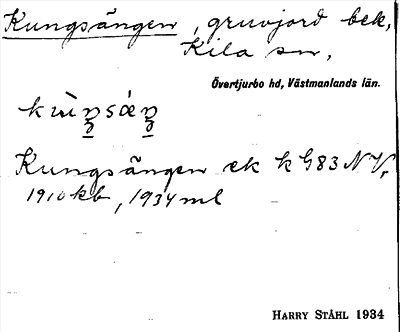 Kungsängen, gruvjord bek,
Kila sn,
Övertjurbo hd, Västmanlands län.
Kungsängen ek k G83 NV,
1910 kb, 1934 ml
HARRY STÅHL 1934